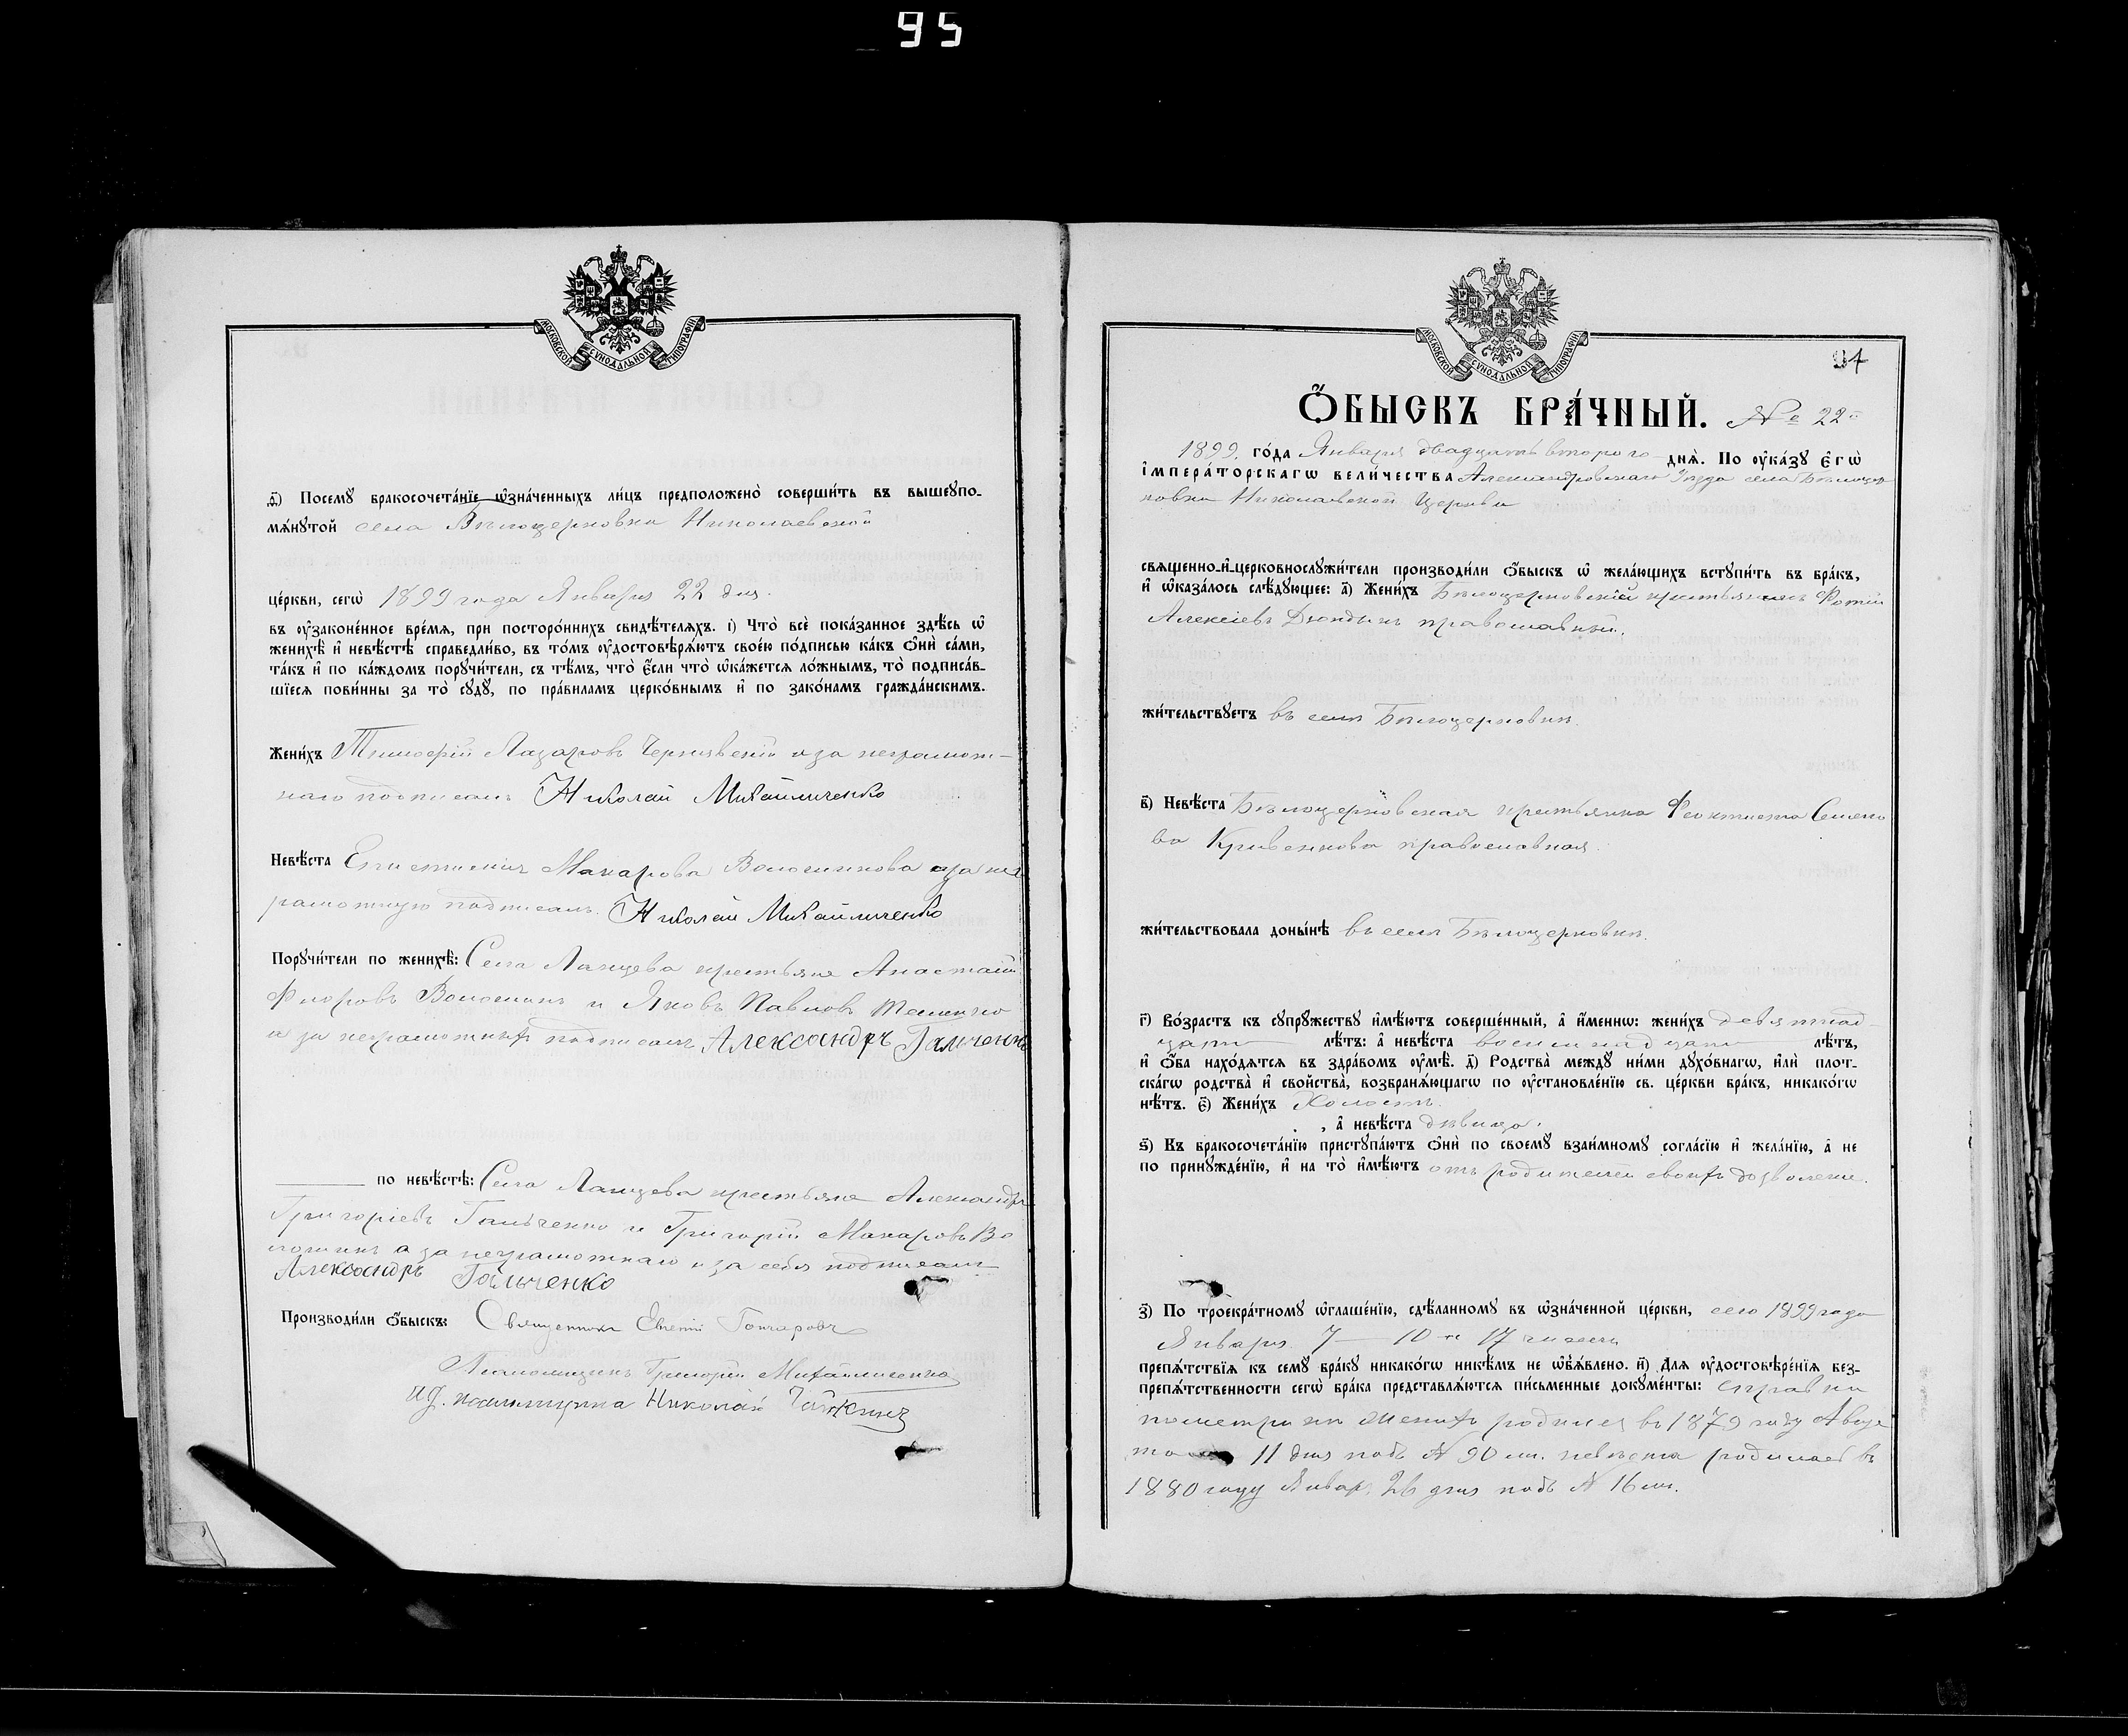 95
МОСКОВСКОЙ СУНОДАЛЬНОЙ ТИПОГРАФІИ
ѳ҃) Посемꙋ бракосочета́нїе ѡ҆зна́ченныхъ ли́цъ предположено̀ соверши́ть въ вышеꙋпо-
мѧ́нꙋтой села Бѣлоцерковки Николаевской
це́ркви, сегѡ̀ 1899 года Января 22 дня.
въ ᲂу҆законе́нное вре́мѧ, при посторо́ннихъ свидѣ́телѧхъ. і) Что̀ всѐ пока́занное здѣ́сь ѡ҆
женихѣ̀ и҆ невѣ́стѣ справедли́во, въ то́мъ ᲂу҆достовѣрѧ́ютъ свое́ю по́дписью ка́къ ѻ҆нѝ са́ми,
та́къ и҆ по ка́ждомъ порꙋчи́тели, съ тѣ́мъ, что̀ є҆́сли что̀ ѡ҆ка́жетсѧ ло́жнымъ, то̀ подписа́в-
шїесѧ пови́нны за то̀ сꙋдꙋ̀, по пра́виламъ церко́внымъ и҆ по зако́намъ гражда́нскимъ.
Жени́хъ Тимофей Лазаровъ Чернявскій а за неграмот-
наго подписалъ Николай Михайличенко
Невѣ́ста Макарова Волошинова а за нег
рамотную подписалъ Николай Михайличенко
Порꙋчи́тели по женихѣ̀: Села Ланцева крестьяне Анастасій
Флоровъ Волошинъ и Яковъ Павловъ
а за неграмотныхъ подписалъ Александръ Гальченко
по невѣ́стѣ: Села Ланцева крестьяне Александръ
Григоріевъ Гальченко и Григорій Макаровъ Во
лошинъ а за неграмотнаго и за себя подписалъ
Александръ Гальченко
Производи́ли ѻ҆́быскъ: Священникъ Евгеній Гончаровъ
Псаломщикъ Григорій Михайличенко
И д. псаломщика Николай
МОСКОВСКОЙ СУНОДАЛЬНОЙ ТИПОГРАФІИ
94
Ѻ҆́БЫСКЪ БРА́ЧНЫЙ. № 22й
1899. го́да Января двадцать второго днѧ̀. По ᲂу҆ка́зꙋ є҆гѡ̀
і҆мпера́торскагѡ вели́чества Александровскаго Уѣзда села Бѣлоцер
ковки Николаевской Церкви
свѧщенно-и҆-церковнослꙋжи́тели производи́ли ѻ҆́быскъ ѡ҆ жела́ющихъ встꙋпи́ть въ бра́къ,
и҆ ѡ҆каза́лось слѣ́дꙋющее: а҃) Жени́хъ Бѣлоцерковскій крестьянинъ Фотій
Алексіевъ Дюндинъ православный.
жи́тельствꙋетъ въ селѣ Бѣлоцерковкѣ.
в҃) Невѣ́ста Бѣлоцерковская крестьянка Феоктиста Семено
ва Кривенкова православная
жи́тельствовала доны́нѣ въ селѣ Бѣлоцерковкѣ.
г҃) Во́зрастъ къ сꙋпрꙋжествꙋ и҆мѣ́ютъ соверше́нный, а҆ и҆́меннѡ: жени́хъ девятнад-
цати лѣ́тъ: а҆ невѣ́ста восемнадцати лѣ́тъ,
и҆ ѻ҆́ба нахо́дѧтсѧ въ здра́вомъ ᲂу҆мѣ̀. д҃) Родства̀ междꙋ ни́ми дꙋхо́внагѡ, и҆лѝ плот-
ска́гѡ родства̀ и҆ свойства̀, возбранѧ́ющагѡ по ᲂу҆становле́нїю св. це́ркви бра́къ, никако́гѡ
нѣ́тъ. є҃) Жени́хъ Холостъ
, а҆ невѣ́ста дѣвица.
ѕ҃) Къ бракосочета́нїю пристꙋпа́ютъ ѻ҆нѝ по своемꙋ̀ взаи́мномꙋ согла́сїю и҆ жела́нїю, а҆ не
по принꙋжде́нїю, и҆ на то̀ и҆мѣ́ютъ отъ родителей своихъ дозволеніе.
з҃) По троекра́тномꙋ ѡ҆глаше́нїю, сдѣ́ланномꙋ въ ѡ҆зна́ченной це́ркви, сего 1899 года
Января 7 — 10 и 17 числа
препѧ́тствїѧ къ семꙋ̀ бра́кꙋ никако́гѡ никѣ́мъ не ѡ҆б̾ѧ́влено. и҃) Длѧ ᲂу҆достовѣре́нїѧ без-
препѧ́тственности сегѡ̀ бра́ка представлѧ́ютсѧ пи́сьменные докꙋме́нты: справки
по метрики Женихъ родился въ 1879 году Авгус
та 11 дня подъ № 90 м. невѣста родилась въ
1880 году Январ. 26 дня подъ № 16 м.